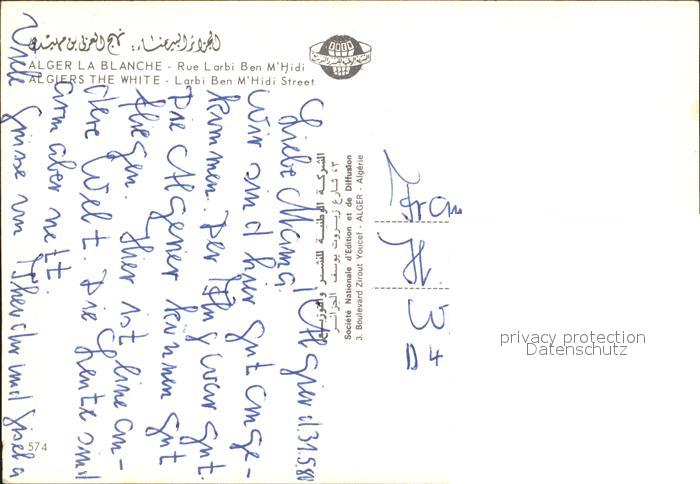 الجزائر البيضاء: نهج العربي بن مهيدي
ALGER LA BLANCHE - Rue Larbi Ben M'Hidi
ALGIERS THE WHITE - Larbi Ben M'Hidi Street
Algier d. 31.5.80
Liebe Mama!
Wir sind hier gut ange-
kommen. Der Flug war gut.
Die Algerier können gut
fliegen. Hier ist eine an-
dere Welt. Die Leute sind
arm aber nett.
Viele Grüsse von Theodor und Gisela
الشركة الوطنية للنشر والتوزيع
٤٣ شارع زيروت يوسف الجزائر
Société Nationale d'Edition et de Diffusion
3. Boulevard Zirout Youcef - ALGER - Algérie
Frau
H.
W
D 4
574
privacy protection
Datenschutz